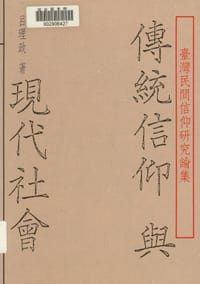 臺灣民間信仰研究論集
傳統信仰與
現代社會
呂理政 著
002908427